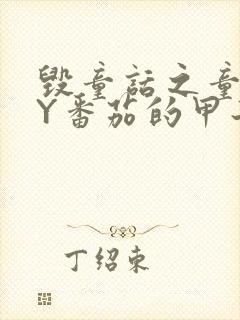 毁童话之童
Y番茄的甲
丁绍东